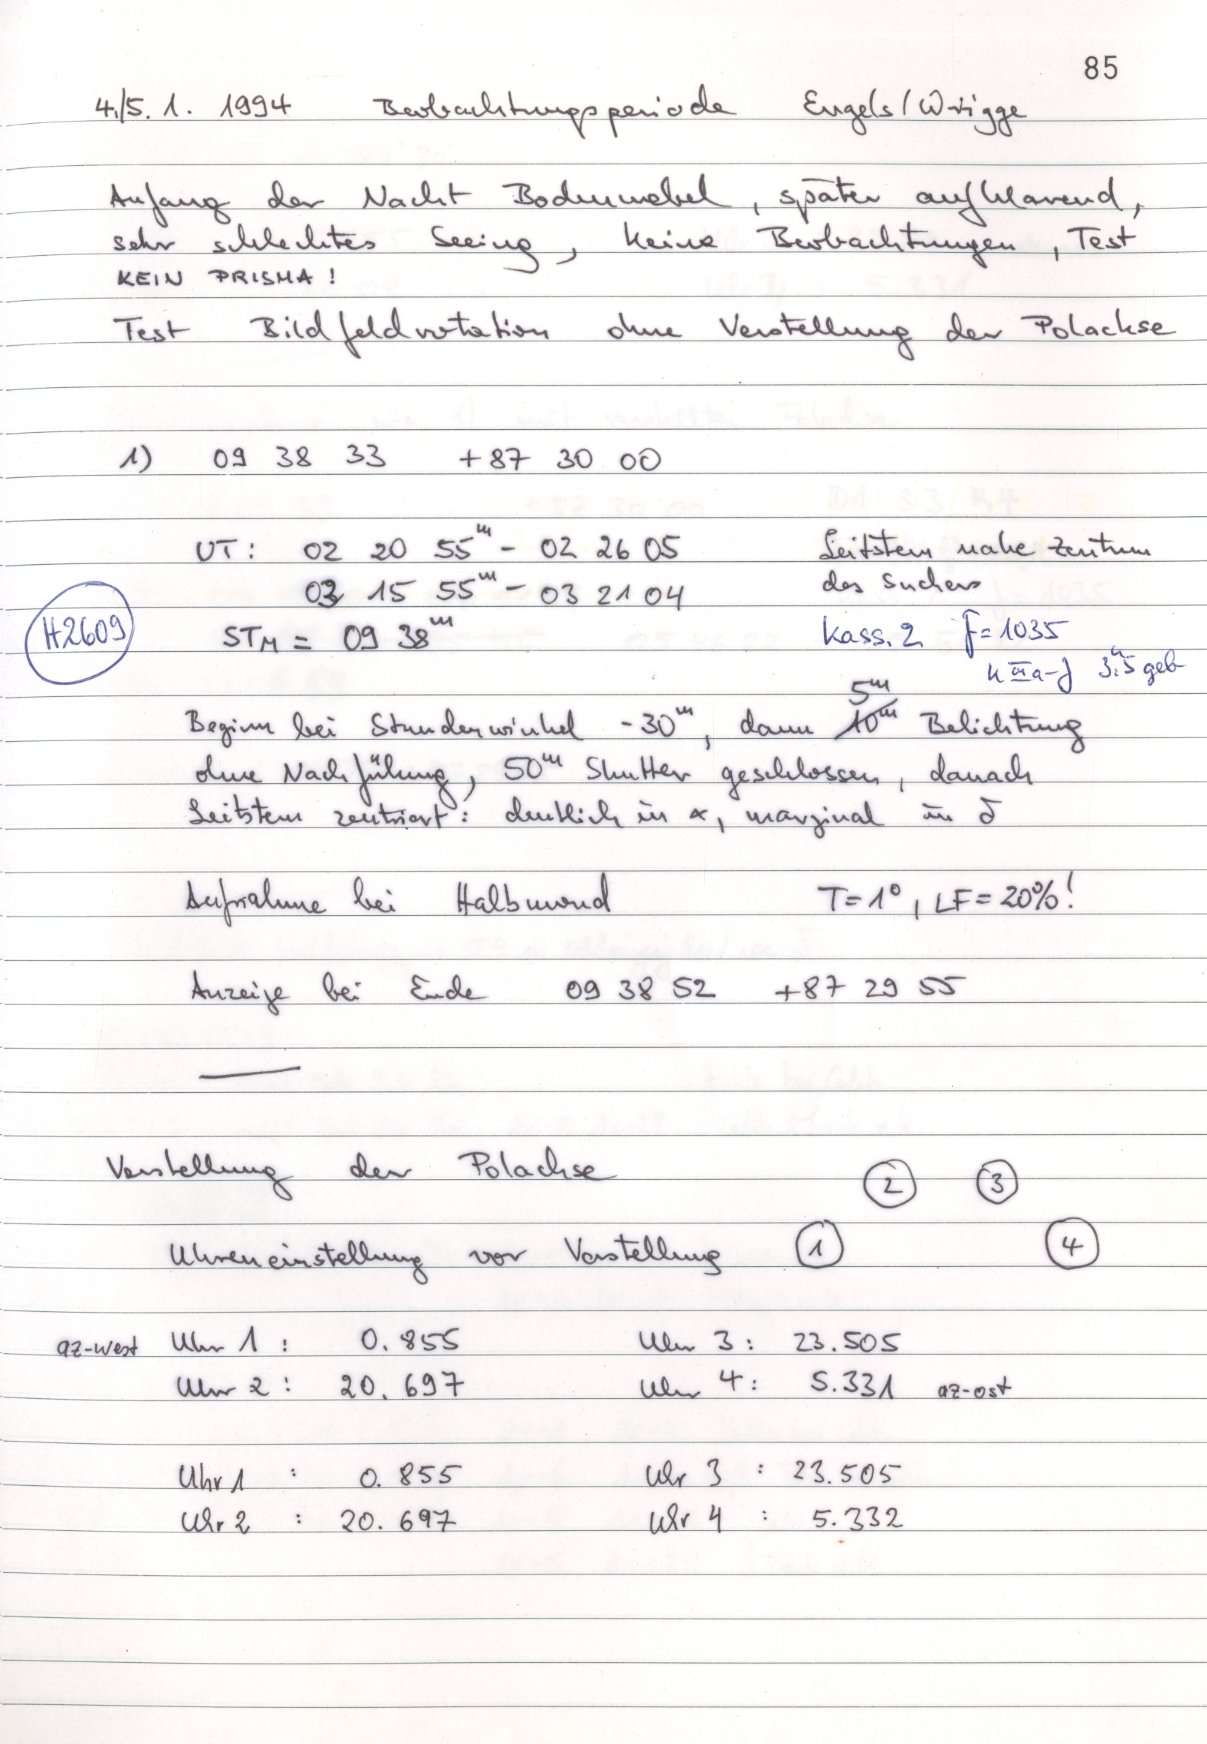 85
4./5. 1. 1994 Beobachtungsperiode Engels/Wrigge
Anfang der Nacht Bodennebel, später aufklarend,
sehr schlechtes Seeing, keine Beobachtungen, Test
KEIN PRISMA!
Test Bildfeldrotation ohne Verstellung der Polachse
1) 09 38 33 +87 30 00
UT: 02 20 55ᵐ - 02 26 05 Leitstern nahe Zentrum
03 15 55ᵐ - 03 21 04 des Suchers
H2609 STM = 09 38ᵐ Kass. 2 f=1035
IIIa-J 3.5 geb
5ᵐ
Beginn bei Stundenwinkel -30ᵐ, dann 10ᵐ Belichtung
ohne Nachführung, 50ᵐ Shutter geschlossen, danach
Leitstern zentriert: deutlich in α, marginal in δ
Aufnahme bei Halbmond T=1°, LF=20%!
Anzeige bei Ende 09 38 52 +87 29 55
Verstellung der Polachse 2 3
Uhreneinstellung vor Verstellung 1 4
az-west Uhr 1: 0.855 Uhr 3: 23.505
Uhr 2: 20.697 Uhr 4: 5.331 az-ost
Uhr 1 : 0.855 Uhr 3 : 23.505
Uhr 2 : 20.697 Uhr 4 : 5.332